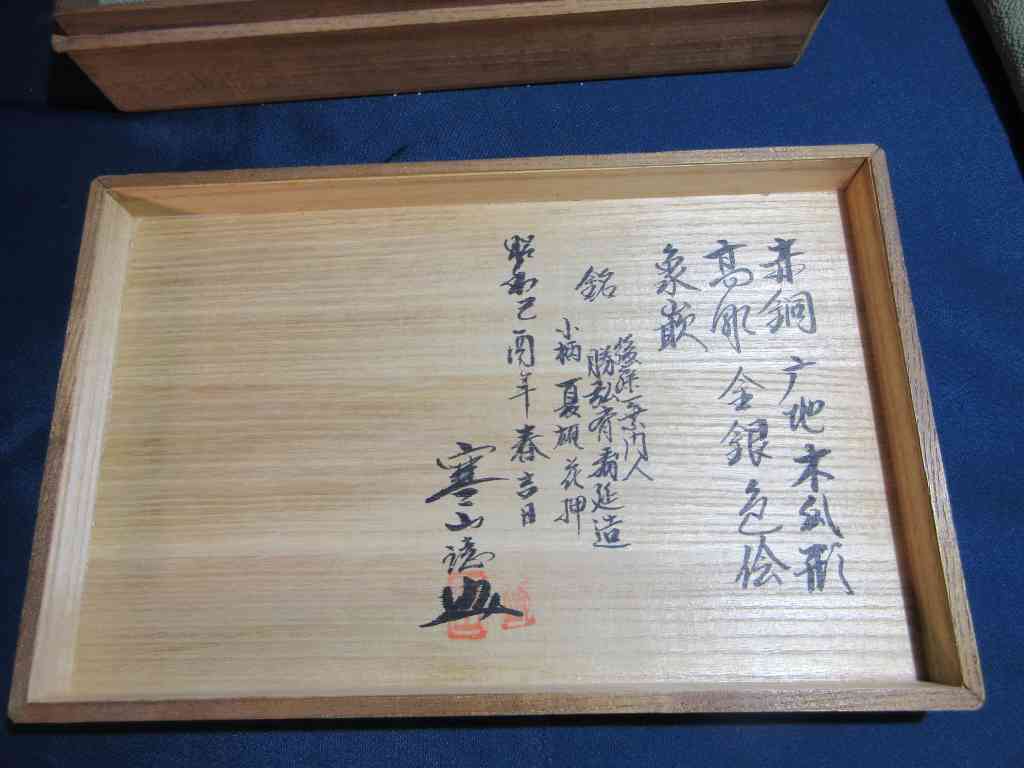 赤銅 广地木瓜形
高彫 金銀色絵
象嵌
銘
後藤一乗門人
勝弘有斎延造
小柄 夏雄 花押
昭和己酉年春吉日
寒山誌